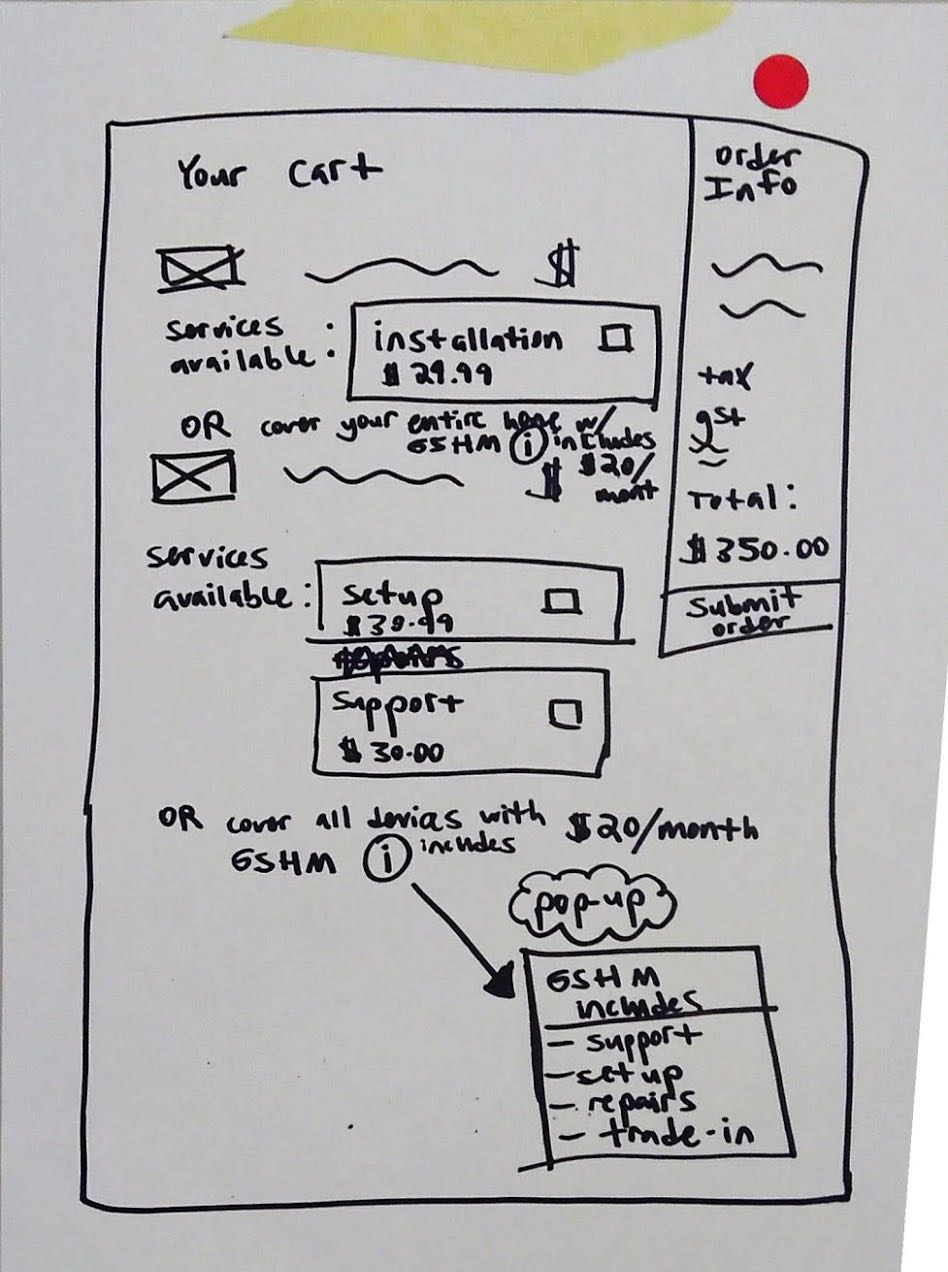 Your Cart
$
services
available :
installation
$ 29.99
OR cover your entire home w/
GSHM i includes
$20/
mont
$
services
available :
setup
$39.99
support
$ 30.00
OR cover all devices with $20/month
GSHM i includes
pop-up
GSHM
includes
- support
- set up
- repairs
- trade-in
order
Info
tax
gst
Total:
$350.00
Submit
order